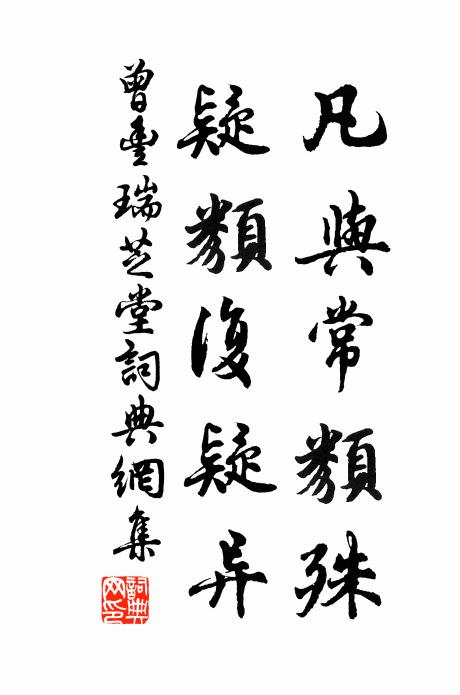 凡與常類殊
疑類復疑异
曾豐瑞芝堂詞典網集
詞典网印